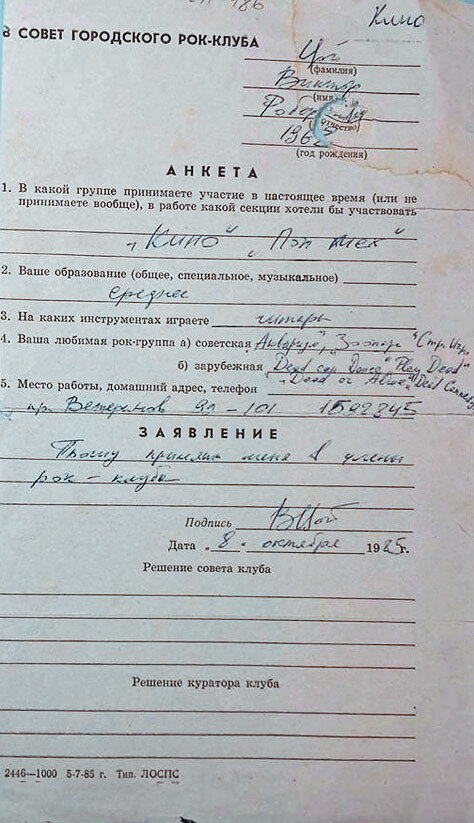 Кино
В СОВЕТ ГОРОДСКОГО РОК-КЛУБА
Цой
(фамилия)
Виктор
(имя)
Робер
отчество)
1962
(год рождения)
АНКЕТА
1. В какой группе принимаете участие в настоящее время (или не
принимаете вообще), в работе какой секции хотели бы участвовать
„Кино" „Поп мех"
2. Ваше образование (общее, специальное, музыкальное)
среднее
3. На каких инструментах играете гитара
4. Ваша любимая рок-группа а) советская „Аквариум", Зоопарк „Стр. Игры"
б) зарубежная „Dead can Dance" „Play Dead"
„Dead or Alive" „Dead Kennedy
5. Место работы, домашний адрес, телефон
пр. Ветеранов 99-101 1522845
ЗАЯВЛЕНИЕ
Прошу принять меня в члены
рок-клуба
Подпись ВЦой
Дата „8" октября 1985г.
Решение совета клуба
Решение куратора клуба
2446—1000 5-7-85 г. Тип. ЛОСПС